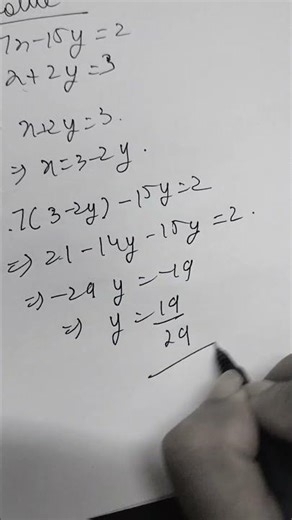 Solve
7x-15y=2
x+2y=3
x+2y=3.
⇒ x=3-2y.
.7(3-2y)-15y=2
⇒ 21-14y-15y=2.
⇒ -29 y = -19
⇒ y = 19/29